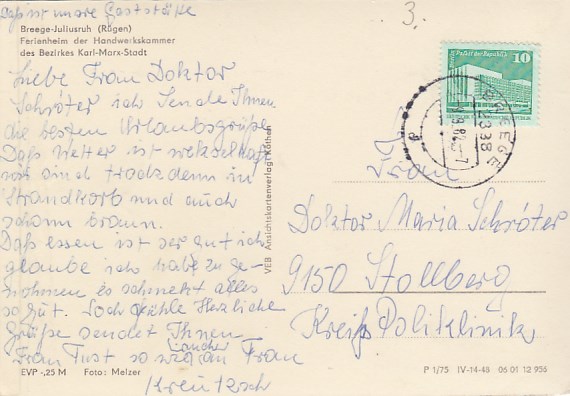 Daß ist unsre Gaststätte
Breege-Juliusruh (Rügen)
Ferienheim der Handwerkskammer
des Bezirkes Karl-Marx-Stadt
Liebe Frau Doktor
Schröter ich Sende Ihnen
die besten Urlaubsgrüße
Daß Wetter ist
wir sind trodzdem in
Strandkorb und auch
schonn braun.
Daß essen ist ser gut ich
glaube ich habe zu ge-
nohmen es schmekt alles
so gut. Herzliche
Grüße sendet Ihnen
Frau Tust so wie an Frau
Kreutzsch
EVP -,25 M Foto: Melzer
VEB Ansichtskartenverlag Köthen
3.
Palast der Republik
10
BREEGE
2338
Frau
Doktor Maria Schröter
9150 Stollberg
Kreiß Poliklinik
P 1/75 IV-14-48 06 01 12 956